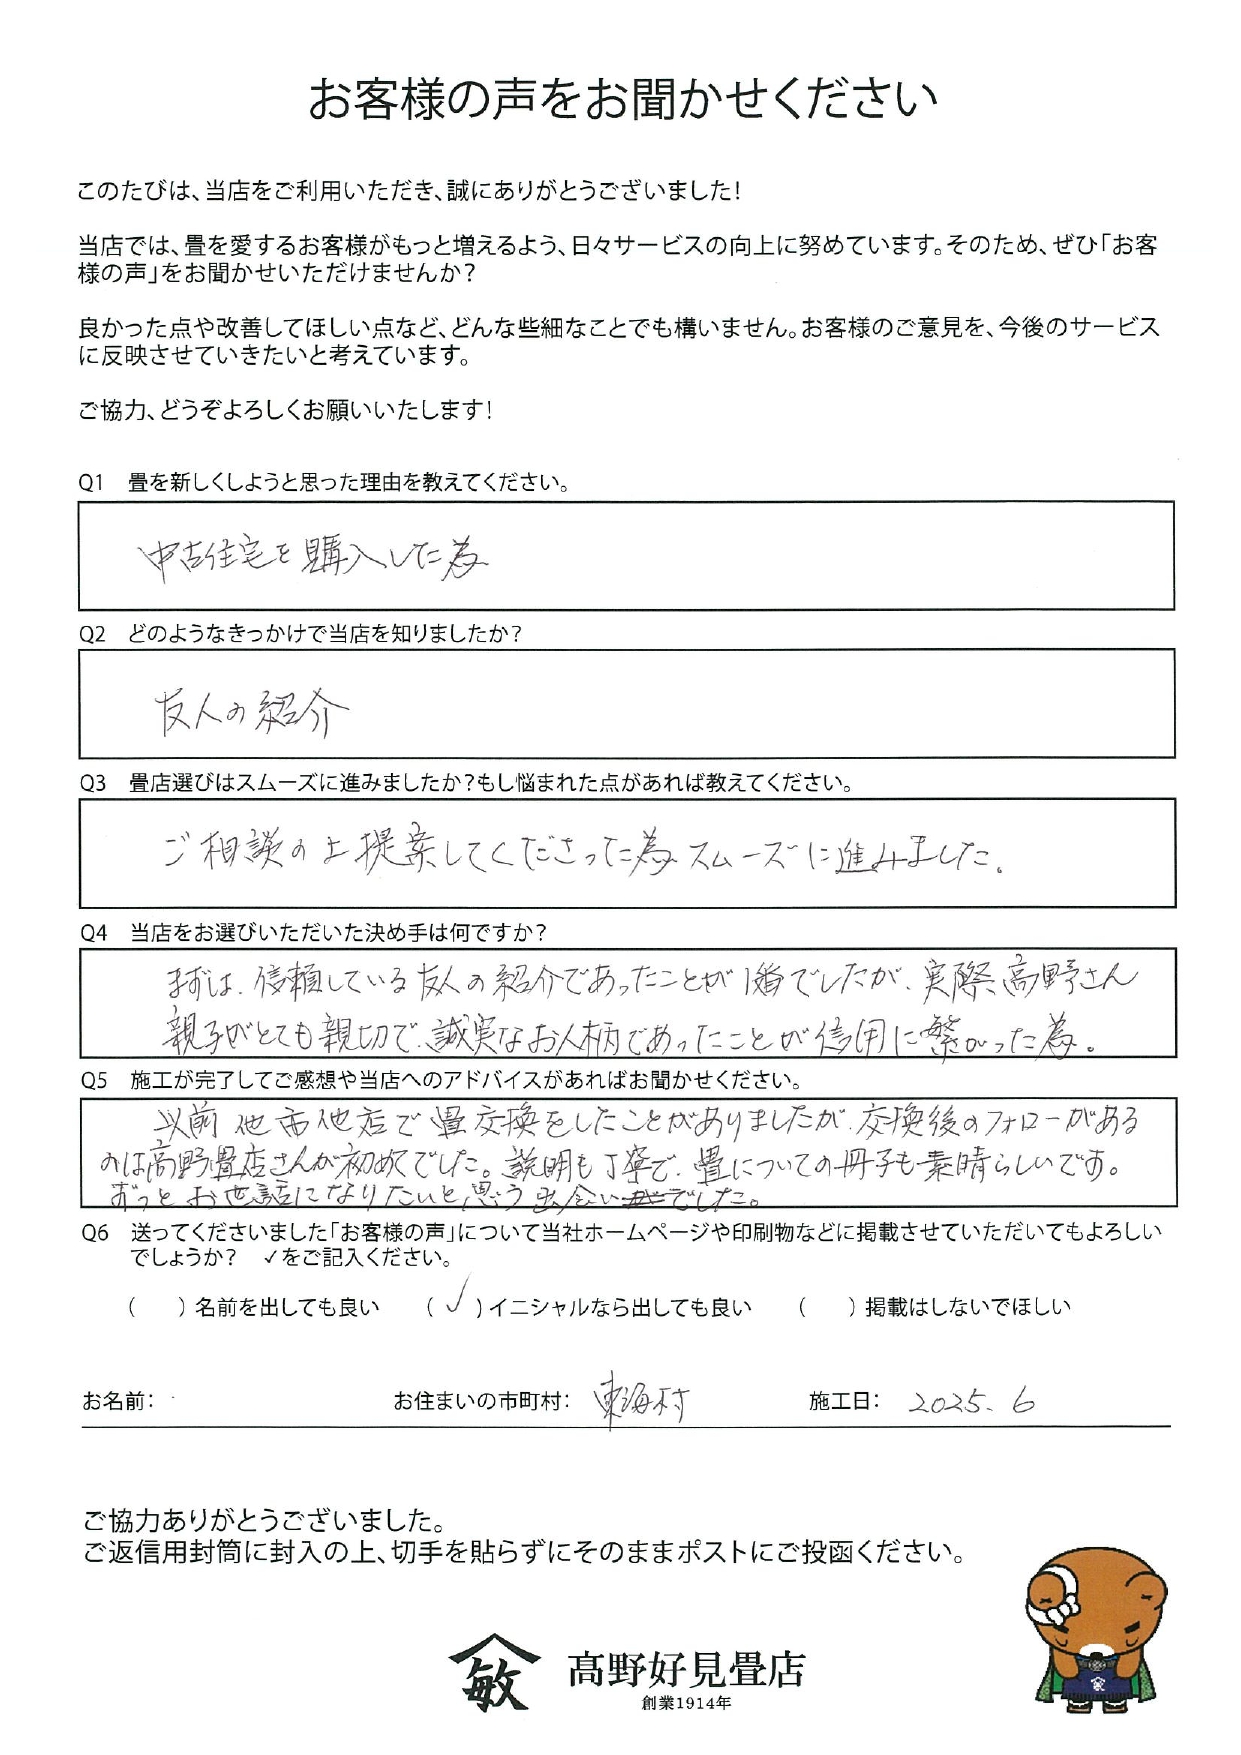 お客様の声をお聞かせください
このたびは、当店をご利用いただき、誠にありがとうございました！
当店では、畳を愛するお客様がもっと増えるよう、日々サービスの向上に努めています。そのため、ぜひ「お客
様の声」をお聞かせいただけませんか？
良かった点や改善してほしい点など、どんな些細なことでも構いません。お客様のご意見を、今後のサービス
に反映させていきたいと考えています。
ご協力、どうぞよろしくお願いいたします！
Q1　畳を新しくしようと思った理由を教えてください。
中古住宅を購入した為
Q2　どのようなきっかけで当店を知りましたか？
友人の紹介
Q3　畳店選びはスムーズに進みましたか？もし悩まれた点があれば教えてください。
ご相談の上提案してくださった為スムーズに進みました。
Q4　当店をお選びいただいた決め手は何ですか？
まずは、信頼している友人の紹介であったことが1番でしたが、実際高野さん
親子がとても親切で、誠実なお人柄であったことが信用に繋がった為。
Q5　施工が完了してご感想や当店へのアドバイスがあればお聞かせください。
以前他市他店で畳交換をしたことがありましたが、交換後のフォローがある
のは高野畳店さんが初めてでした。説明も丁寧で、畳についての冊子も素晴らしいです。
ずっとお世話になりたいと思う出会いでした。
Q6　送ってくださいました「お客様の声」について当社ホームページや印刷物などに掲載させていただいてもよろしい
でしょうか？　✓をご記入ください。
(　　) 名前を出しても良い　　( ✓ ) イニシャルなら出しても良い　　(　　) 掲載はしないでほしい
お名前：　お住まいの市町村： 東海村　施工日： 2025. 6
ご協力ありがとうございました。
ご返信用封筒に封入の上、切手を貼らずにそのままポストにご投函ください。
敏 髙野好見畳店
創業1914年